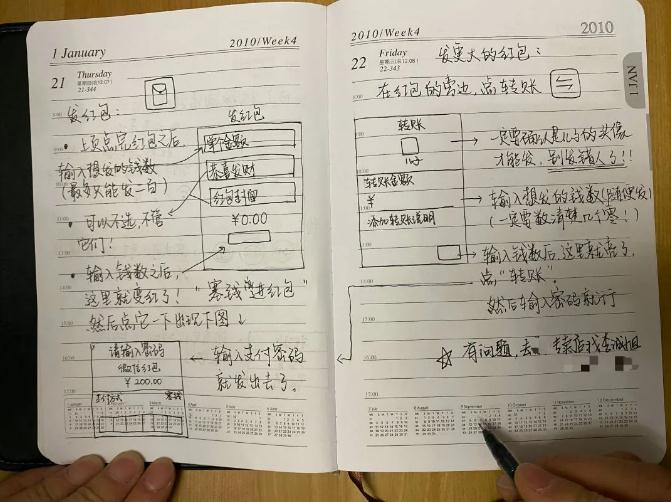 1 January
2010/Week4
21
Thursday
21-344
发红包：
发红包
· 上页点完红包之后，
输入想发的钱数
(最多只能发二百)
单个金额
恭喜发财
红包封面
¥0.00
· 可以不选，不管
它们！
· 输入钱数之后，
这里就变红了！"塞钱进红包"
然后点它一下出现下图↓
请输入密码
微信红包
¥ 200.00
支付方式
零钱
← 输入支付密码
就发出去了。
2010/Week4
2010
22
Friday
22-343
发更大的红包：
在红包的旁边，点转账
JAN/1
转账
转账金额
¥
添加转账说明
→ 一定要确认是让的头像
才能发，别发错人了!!
→ 输入想发的钱数(随便发)
(一定要数清楚几个零！)
→ 输入钱数后，这里就亮了，
点"转账"。
然后输入密码就行了
☆ 有问题，去